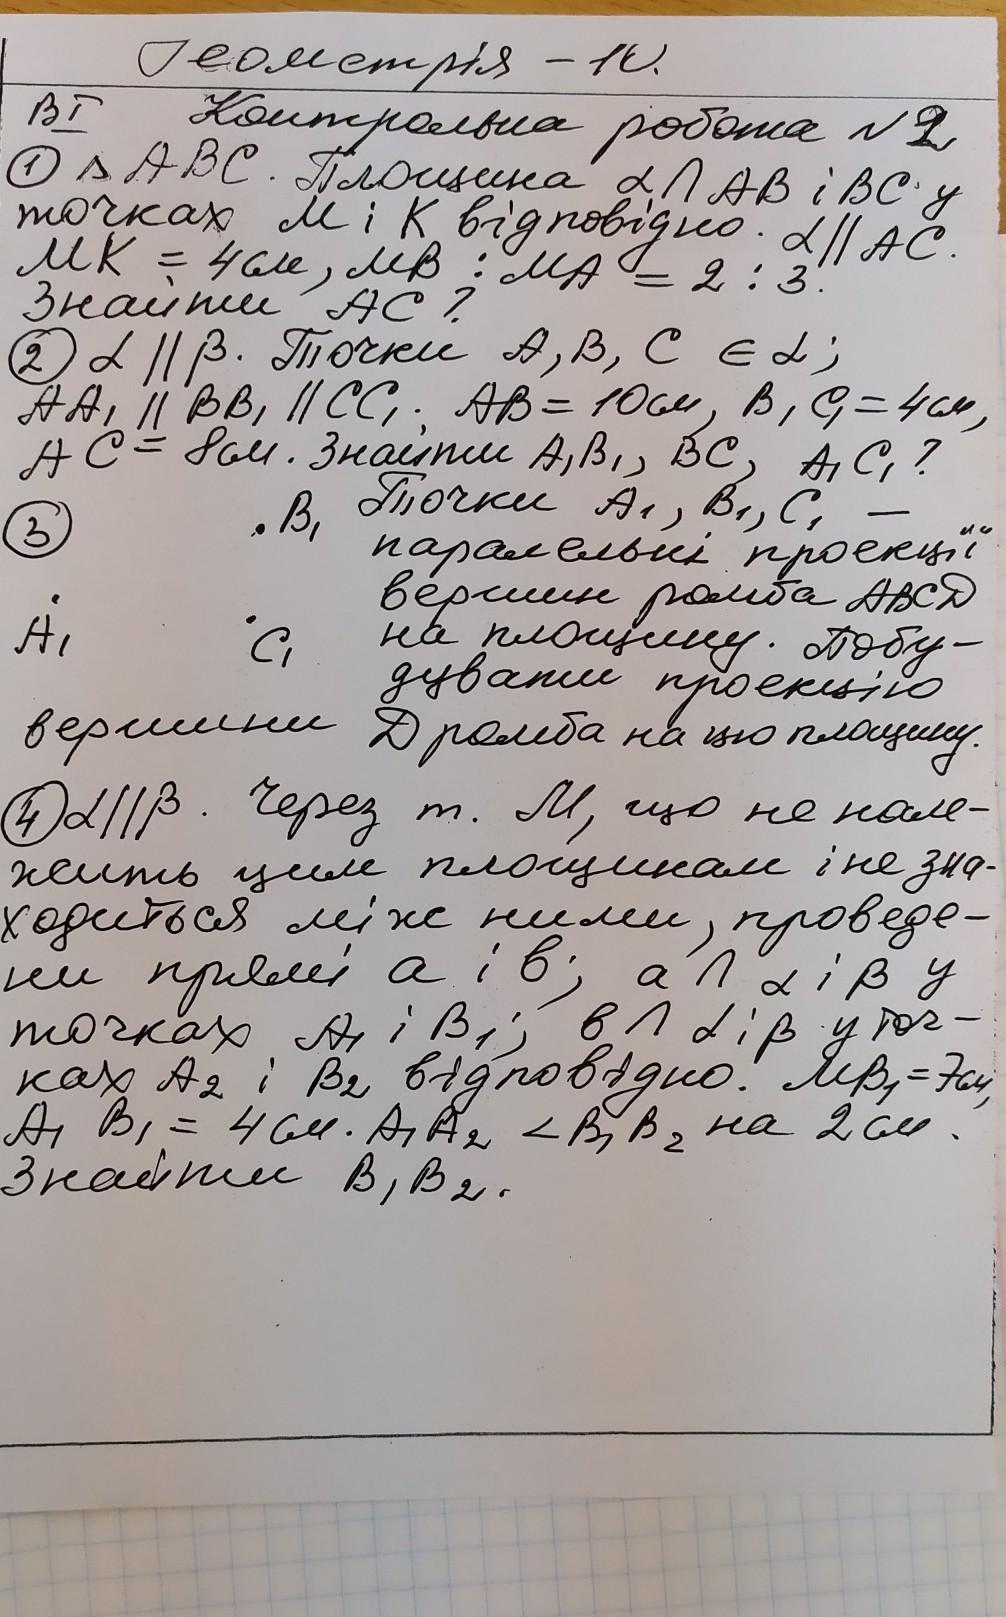 Геометрія - 10.
ВІ Контрольна робота №2
① △ABC. Площина α∩AB і BC у
точках M і K відповідно. α||AC.
MK = 4см, MB : MA = 2 : 3.
Знайти AC?
② α||β. Точки A, B, C ∈ α;
AA₁ || BB₁ || CC₁. AB = 10см, B₁C₁ = 4см,
AC = 8см. Знайти A₁B₁, BC, A₁C₁?
③ .B₁ Точки A₁, B₁, C₁ –
паралельні проекції
вершин ромба ABCD
A₁ C₁ на площину. Побу-
дувати проекцію
вершини D ромба на цю площину.
④ α||β. Через т. M, що не нале-
жить цим площинам і не зна-
ходиться між ними, проведе-
ни прямі a і b; a∩α і β у
точках A₁ і B₁; b∩α і β у точ-
ках A₂ і B₂ відповідно. MB₁ = 7см,
A₁B₁ = 4см. A₁A₂ < B₁B₂ на 2см.
Знайти B₁B₂.